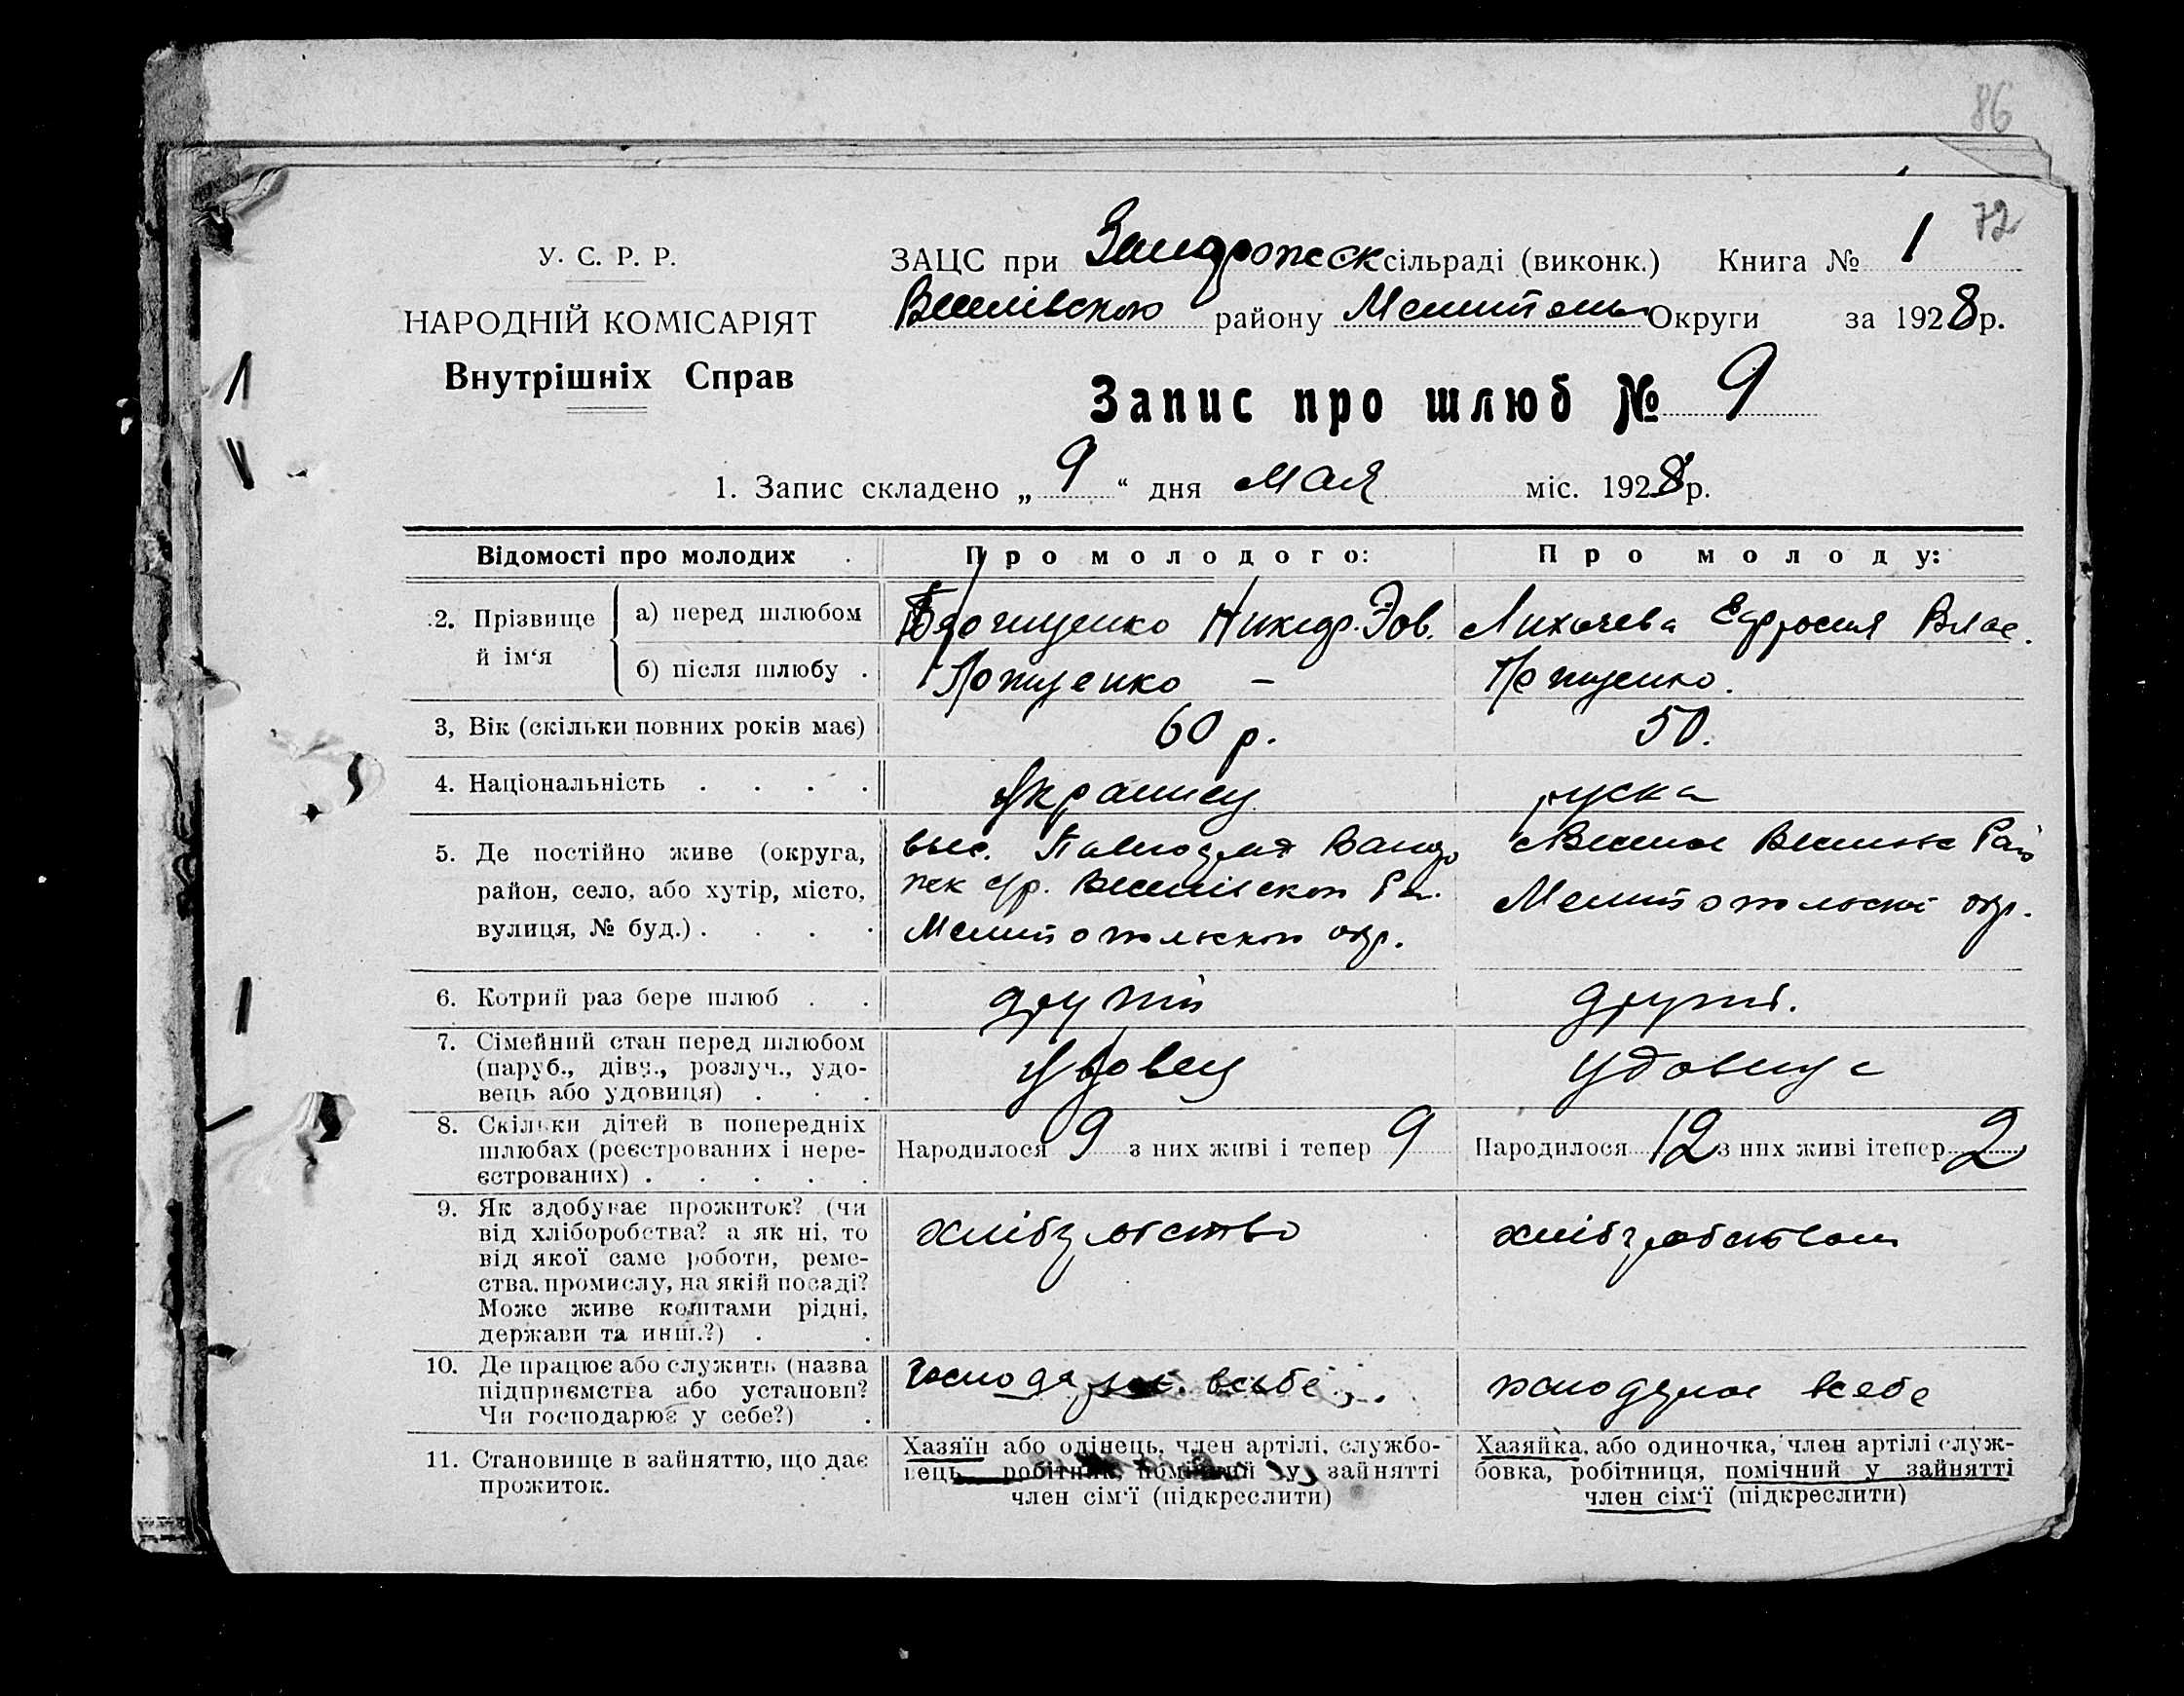 86
72
У. С. Р. Р.
НАРОДНІЙ КОМІСАРІЯТ
Внутрішніх Справ
ЗАЦС при сільраді (виконк.) Книга № 1
Веселівского району Мелитополь Округи за 1928 р.
Запис про шлюб № 9
1. Запис складено „ 9 “ дня мая міс. 1928 р.
Відомості про молодих Про молодого: Про молоду:
2. Прізвище й ім‘я
а) перед шлюбом Лихачева Ефросия Влас.
б) після шлюбу .
3, Вік (скільки повних років має) 60 р. 50.
4. Національність . . . . Украинец руска
5. Де постійно живе (округа, район, село, або хутір, місто, вулиця, № буд.) . . . .
Мелитопольского окр.
Мелитопольскоі окр.
6. Котрий раз бере шлюб . . другий другий.
7. Сімейний стан перед шлюбом (паруб., дівч., розлуч., удовець або удовиця) . . . Удовец удовица
8. Скільки дітей в попередніх шлюбах (реєстрованих і нереєстрованих) . . . . .
Народилося 9 з них живі і тепер 9
Народилося 12 з них живі і тепер 2
9. Як здобуває прожиток? (чи від хліборобства? а як ні, то від якої саме роботи, ремества, промислу, на якій посаді? Може живе коштами рідні, держави та инш.?) . .
хліборобство
хліборобством
10. Де працює або служить (назва підприємства або установи? Чи господарює у себе?) .
всебе
всебе
11. Становище в зайняттю, що дає прожиток.
Хазяїн або одінець, член артілі, службовець, робітник, помічний у зайнятті член сім‘ї (підкреслити)
Хазяйка, або одиночка, член артілі службовка, робітниця, помічний у зайнятті член сім‘ї (підкреслити)